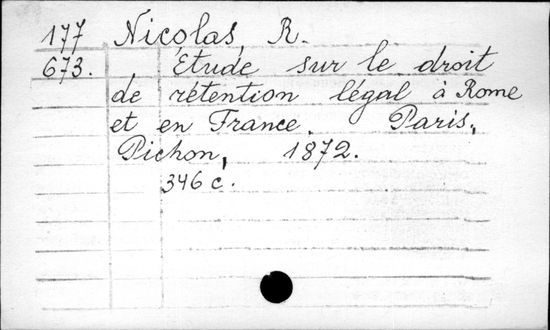 177 Nicolas R.
673. Etude sur le droit
de rétention légal à Rome
et en France. Paris,
Pichon, 1872.
346 c.